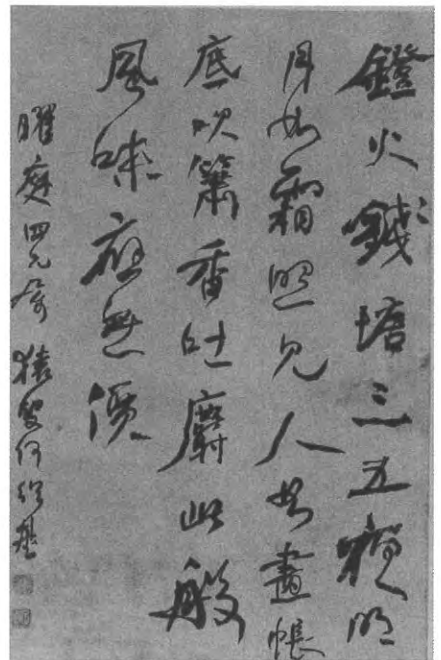 鐙火錢塘三五夜明
月如霜照見人如畫帳
底吹簫香吐麝此般
風味應無價
曜庭四兄屬 猨叟何紹基